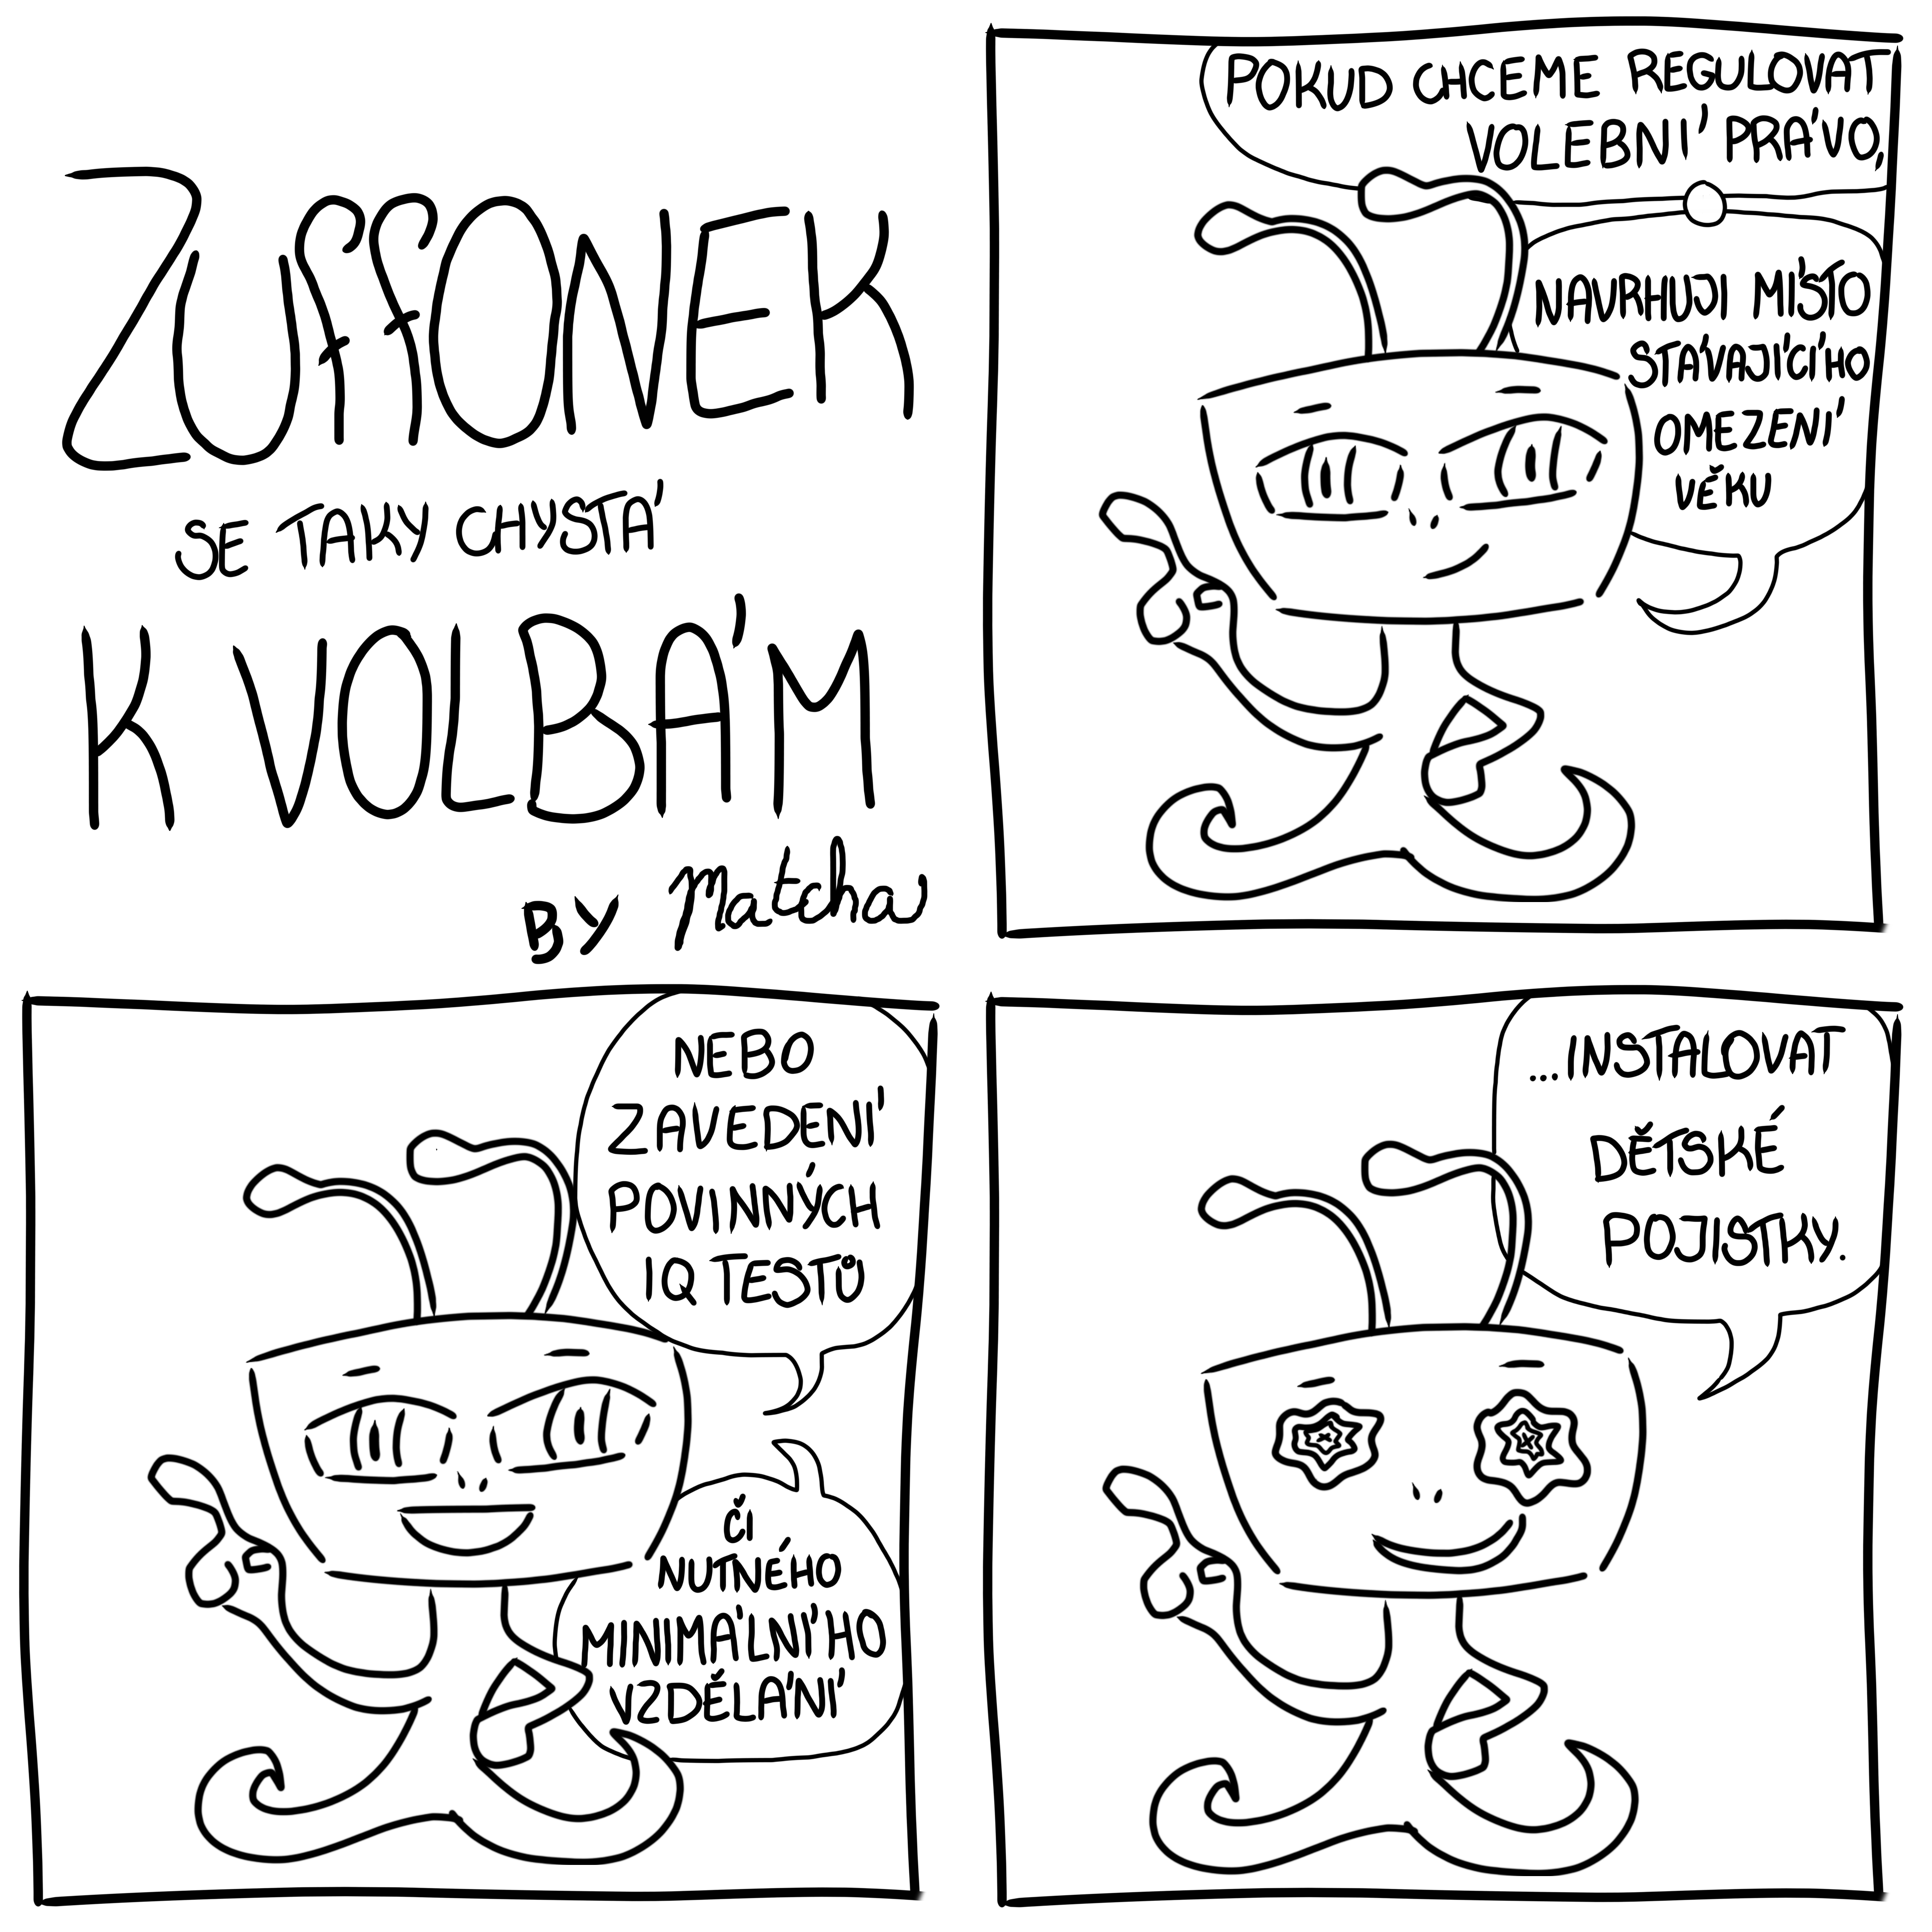 ZUFFONEK
SE TAKY CHYSTÁ
K VOLBÁM
BY Matcha
POKUD CHCEME REGULOVAT
VOLEBNÍ PRÁVO,
NAVRHUJI MÍSTO
STÁVAJÍCÍHO
OMEZENÍ
VĚKU
NEBO
ZAVEDENÍ
POVINNÝCH
IQ TESTŮ
ČI
NUTNÉHO
MINIMÁLNÍHO
VZDĚLÁNÍ
...INSTALOVAT
DĚTSKÉ
POJISTKY.